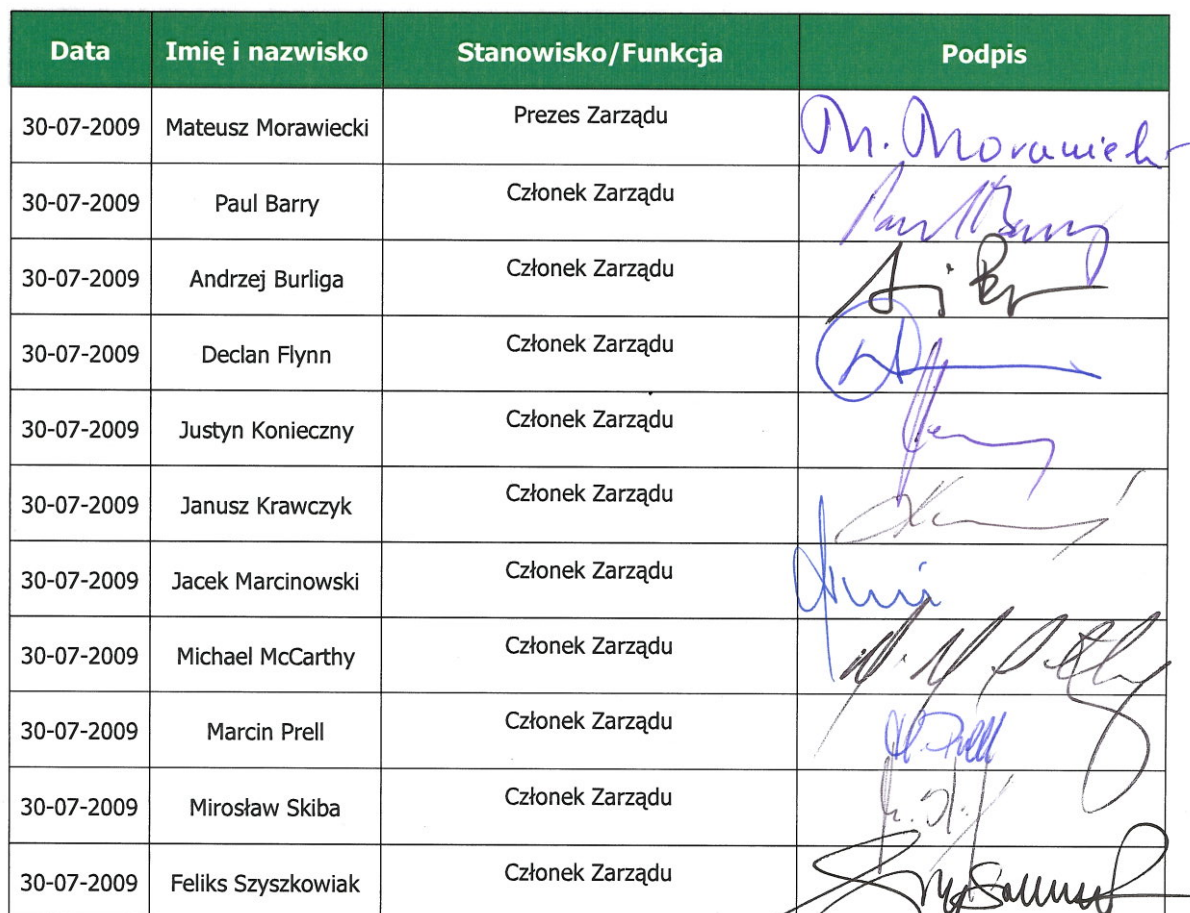 Data Imię i nazwisko Stanowisko/Funkcja Podpis
30-07-2009 Mateusz Morawiecki Prezes Zarządu M. Morawiecki
30-07-2009 Paul Barry Członek Zarządu Paul Barry
30-07-2009 Andrzej Burliga Członek Zarządu
30-07-2009 Declan Flynn Członek Zarządu
30-07-2009 Justyn Konieczny Członek Zarządu
30-07-2009 Janusz Krawczyk Członek Zarządu
30-07-2009 Jacek Marcinowski Członek Zarządu
30-07-2009 Michael McCarthy Członek Zarządu
30-07-2009 Marcin Prell Członek Zarządu M. Prell
30-07-2009 Mirosław Skiba Członek Zarządu
30-07-2009 Feliks Szyszkowiak Członek Zarządu